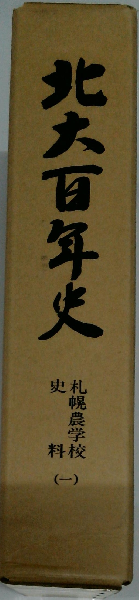 北大百年史
札幌農学校
史料
(一)